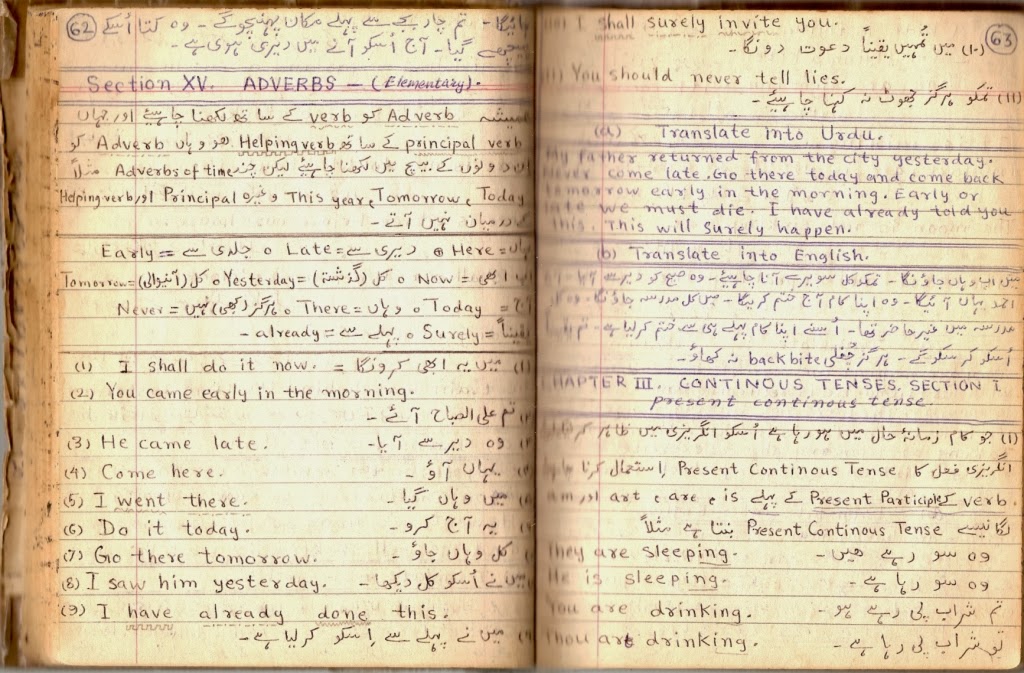 62 جائیگا - تم چار بجے سے پہلے مکان پہنچوگے - وہ کتا اُسکے
پیچھے گیا - آج اُسکو آنے میں دیری ہوئی ہے -
Section XV. ADVERBS — (Elementary).
ہمیشہ Adverb کو verb کے ساتھ لکھنا چاہیئے اور جہاں
principal verb کے ساتھ Helping verb ھو وہاں Adverb کو
ان دونوں کے بیچ میں لکھنا چاہیئے لیکن چند Adverbs of time مثلاً
Today ، Tomorrow ، This year وغیرہ Principal اور Helping verb
کے درمیان نہیں آتے -
Early = جلدی سے ٥ Late = دیری سے ٥ Here = یہاں
Tomorrow = کل (آنیوالی) ٥ Yesterday = کل (گذشتہ) ٥ Now = اب ابھی
Never = ہرگز (کبھی) نہیں ٥ There = وہاں ٥ Today = آج
already = پہلے سے ٥ Surely = یقیناً -
(1) I shall do it now. = میں یہ ابھی کرونگا
(2) You came early in the morning.
تم علی الصباح آئے -
(3) He came late. وہ دیر سے آیا -
(4) Come here. یہاں آؤ -
(5) I went there. میں وہاں گیا -
(6) Do it today. یہ آج کرو -
(7) Go there tomorrow. کل وہاں جاؤ -
(8) I saw him yesterday. میں نے اُسکو کل دیکھا -
(9) I have already done this.
میں نے پہلے سے اِسکو کرلیا ہے -
I shall surely invite you. 63
(١٠) میں تُمہیں یقیناً دعوت دونگا -
You should never tell lies.
(١١) تمکو ہرگز جھوٹ نہ کہنا چاہیئے -
(a) Translate into Urdu.
My father returned from the city yesterday.
Never come late. Go there today and come back
tomorrow early in the morning. Early or
late we must die. I have already told you
this. This will surely happen.
(b) Translate into English.
میں اب وہاں جاؤنگا - تمکو کل سویرے آنا چاہیئے - وہ صبح کو دیر سے آیا -
احمد یہاں آئیگا - وہ اپنا کام آج ختم کریگا - میں کل مدرسہ جاؤنگا - وہ کل
مدرسہ میں غیر حاضر تھا - اُسنے اپنا کام پہلے ہی سے ختم کرلیا ہے - تم
اُسکو کر سکو گے - ہرگز چُغلی backbite نہ کھاؤ -
HAPTER III. CONTINOUS TENSES. SECTION I.
present continous tense.
(١) جو کام زمانۂ حال میں ہو رہا ہے اُسکو انگریزی میں ظاہر
انگریزی فعل کا Present Continous Tense اِستعمال کرنا
verb کے Present Participle کے پہلے is ، are ، art اور am
لگانیسے Present Continous Tense بنتا ہے مثلاً
They are sleeping. وہ سو رہے ھیں -
He is sleeping. وہ سو رہا ہے -
You are drinking. تم شراب پی رہے ہو -
Thou art drinking. تو شراب پی رہا ہے -